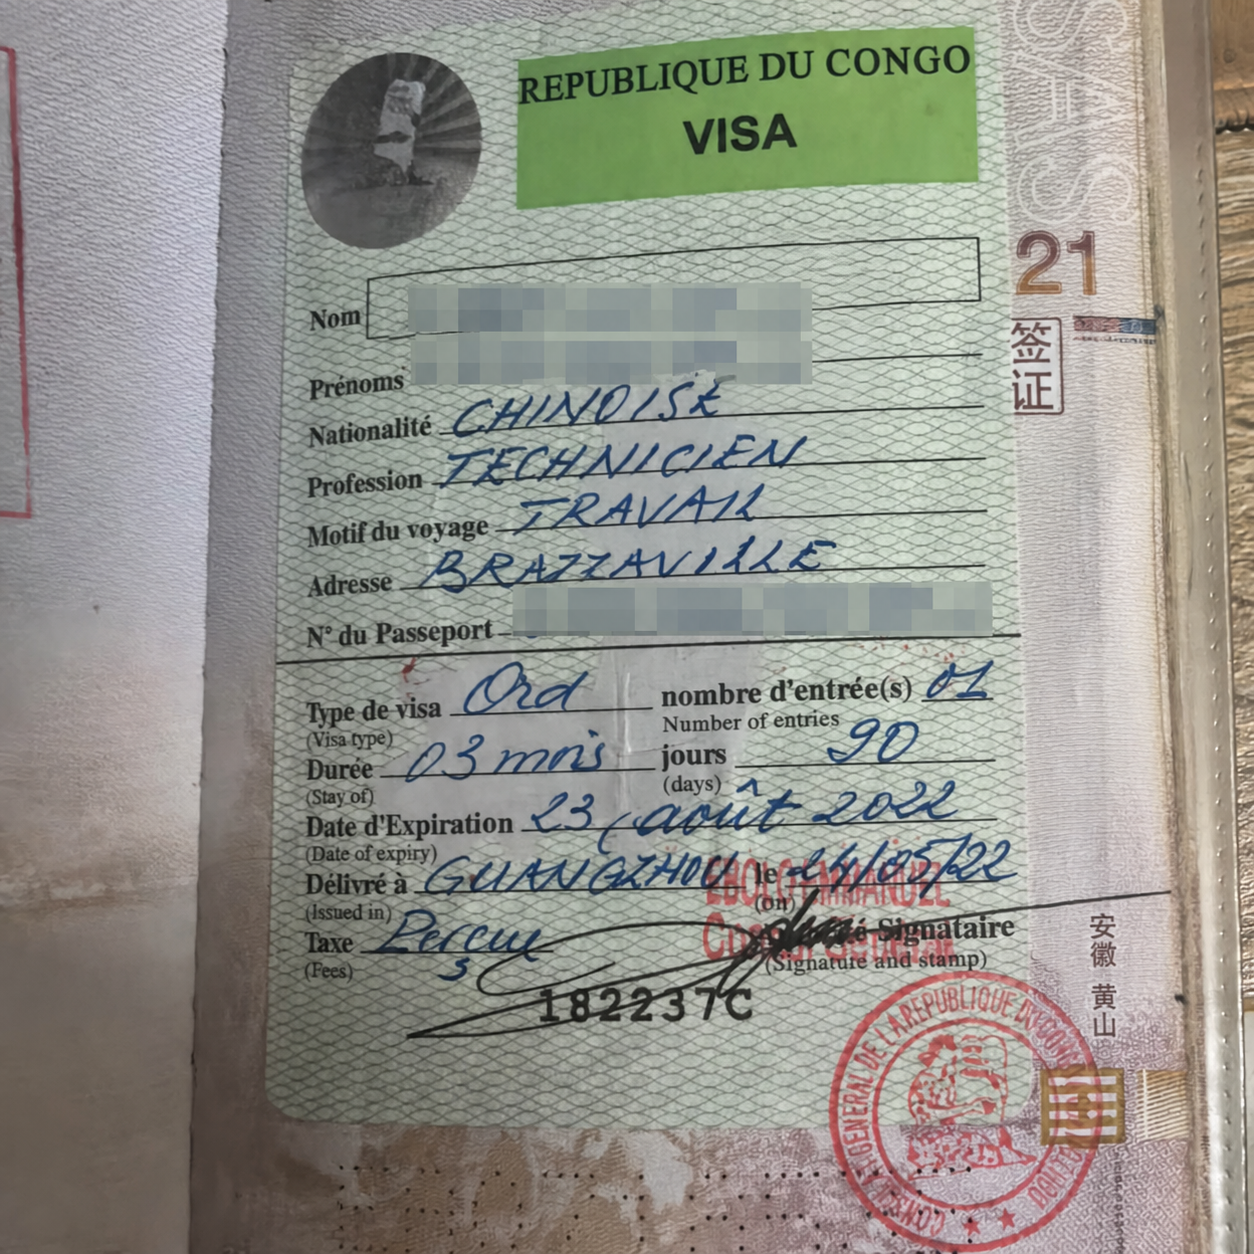 REPUBLIQUE DU CONGO
VISA
Nom
Prénoms
Nationalité CHINOISE
Profession TECHNICIEN
Motif du voyage TRAVAIL
Adresse BRAZZAVILLE
N° du Passeport
Type de visa Ord nombre d'entrée(s) 01
(Visa type) Number of entries
Durée 03 mois jours 90
(Stay of) (days)
Date d'Expiration 23 août 2022
(Date of expiry)
Délivré à GUANGZHOU le 24/05/22
(Issued in) (on)
Taxe Perçue Signataire
(Fees) (Signature and stamp)
182237C
21
签证
安徽 黄山
GENERAL DE LA REPUBLIQUE DU CONGO